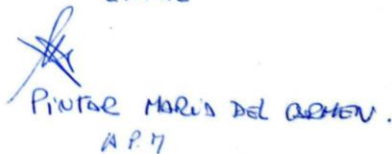 PINTOR MARIA DEL CARMEN.
A P. M